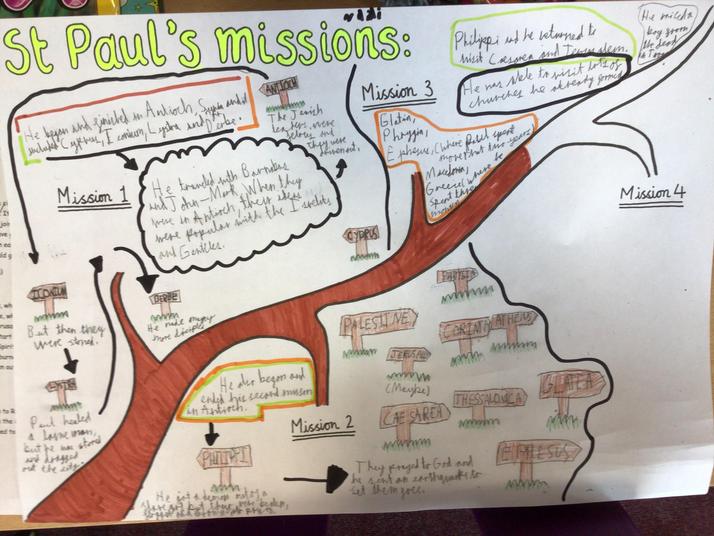 St Paul's missions:
He began and finished in Antioch, Syria and
included Cyprus, Iconium, Lystra and Derbe.
ANTIOCH
The Jewish
leaders were
jealous and
they were
driven out.
Mission 1
He traveled with Barnabas
and John-Mark. When they
were in Antioch, their ideas
were popular with the
and Gentiles.
CYPRUS
ICONIUM
But then they
were stoned.
DERBE
He made many
more disciples
LYSTRA
Paul healed
a lame man,
but he was stoned
and dragged
out the city.
Mission 3
Galatia,
Phrygia,
Ephesus, (where Paul spent
more than two years)
Macedonia,
Greece (where he
spent three
months)
Philippi and he returned to
visit Caesarea and Jerusalem.
He was able to visit lots of
churches he already formed
He raised a
boy from
the dead
in Troas
Mission 4
He also began and
ended his second mission
in Antioch.
Mission 2
PHILIPPI
He got a demon out of a
slave girl but they were beaten,
They prayed to God and
he sent an earthquake to
set them free.
PALESTINE
JERUSALEM
(Maybe)
CAESAREA
CORINTH
ATHENS
THESSALONICA
GLATEA